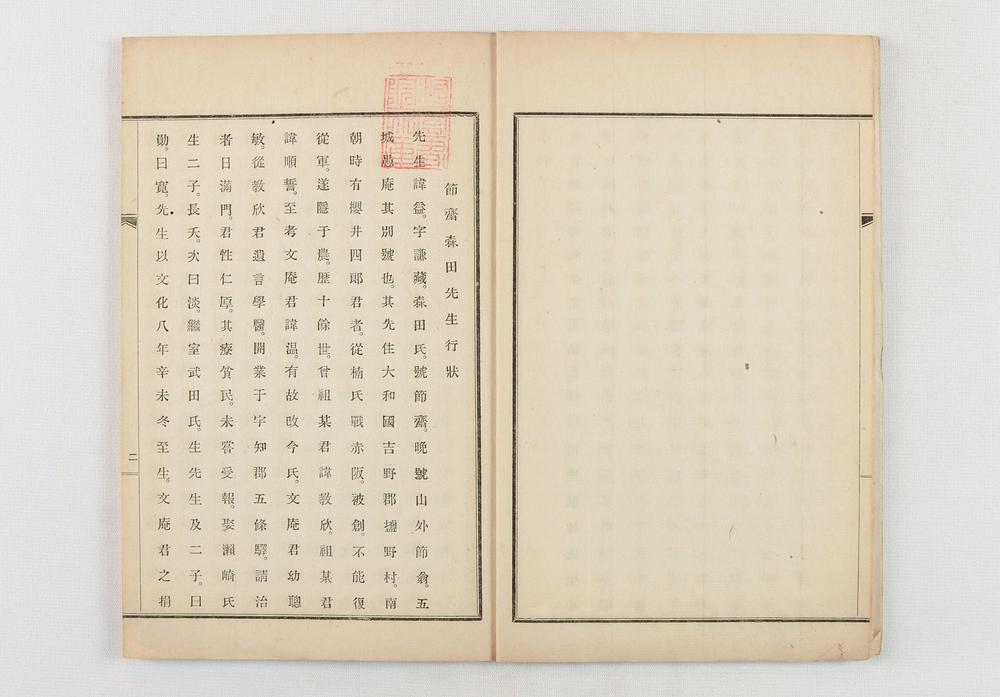 節齋森田先生行狀
先生諱益。字謙藏。森田氏。號節齋。晚號山外節翁。五
城愚庵其別號也。其先住大和國吉野郡壚野村。南
朝時有櫻井四郎君者。從楠氏戰赤阪。被創。不能復
從軍。遂隱于農。歷十餘世。曾祖某君諱教欣。祖某君
諱順誓。至考文庵君諱温。有故改今氏。文庵君幼聰
敏。從教欣君遺言學醫。開業于宇知郡五條驛。請治
者日滿門。君性仁厚。其療貧民。未嘗受報。娶瀨崎氏
生二子。長夭。次曰淡。繼室武田氏。生先生及二子。曰
勛。曰寬。先生以文化八年辛未冬至生。文庵君之捐
二